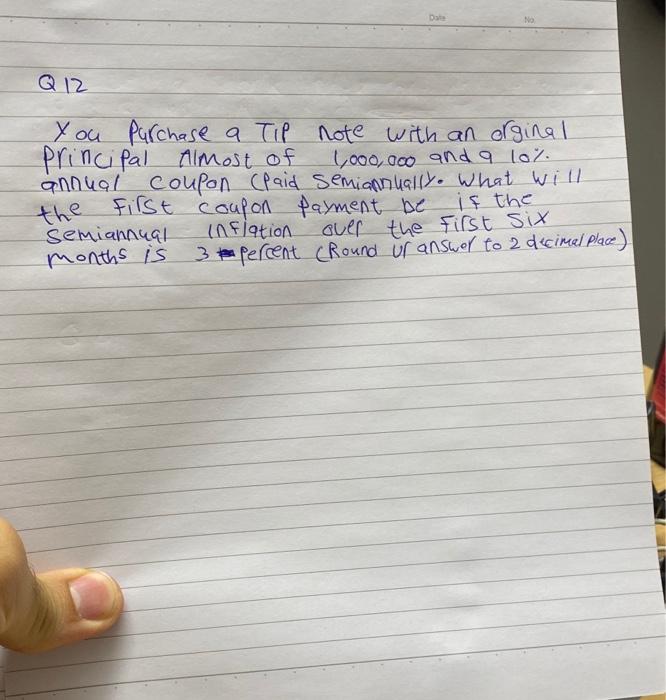 Date No.
Q12
You Purchase a TIP note with an orginal
Principal Almost of 1,000,000 and a 10%.
annual coupon (Paid semiannually. What will
the first coupon payment be if the
semiannual inflation over the first six
months is 3 percent (Round ur answer to 2 decimal place)